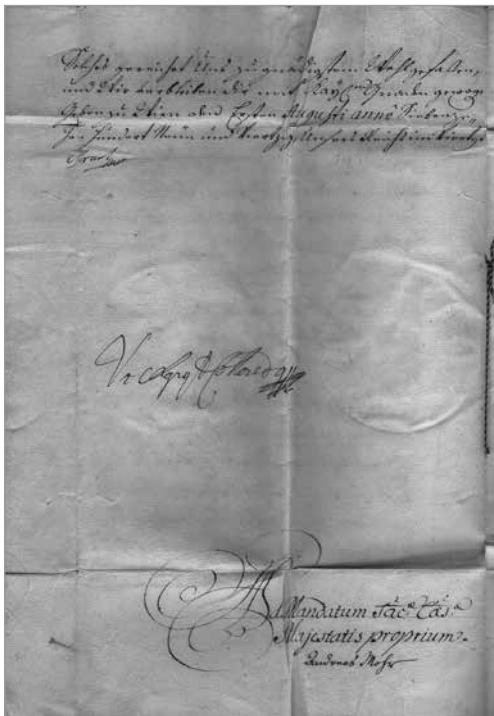 Solches gereichet Uns zu gnädigstem Wohlgefallen,
und Wir verbleiben dir mit Kay. Gnaden gewogen
Geben zu Wien den Ersten Augusti anno Siebenze-
hen Hundert Neun und Viertzig, Unsers Reichs im vierte
Frantz
Vt Colloredo
Ad Mandatum Sac. Cæs.
Majestatis proprium.
Andreas Mohr